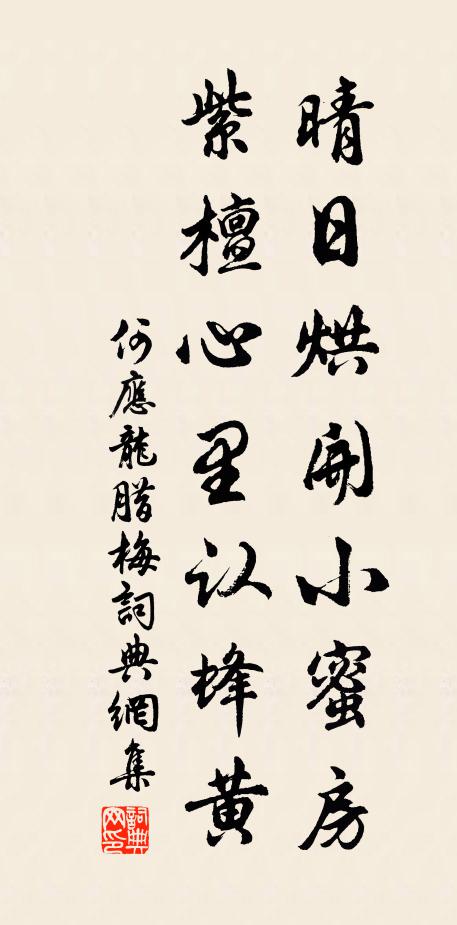 晴日烘開小蜜房
紫檀心里认蜂黄
何應龍腊梅詞典網集
詞典网印